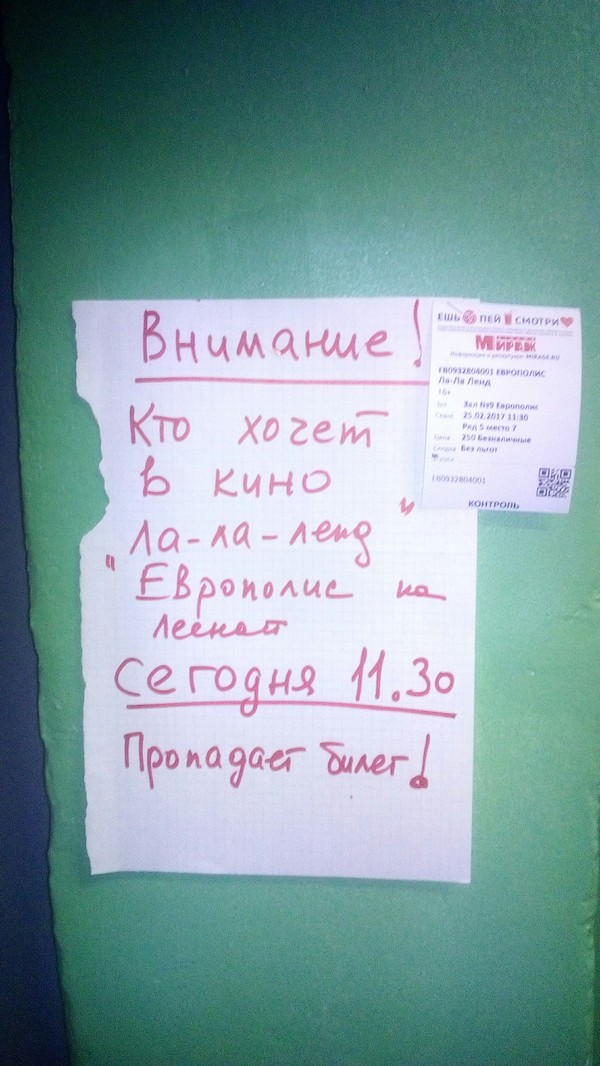 Внимание!
Кто хочет
в кино
"Ла-ла-ленд"
Европолис на
лесной
Сегодня 11.30
Пропадает билет!
ЕШЬ ПЕЙ СМОТРИ
МИРАЖ
Информация о репертуаре: MIRAGE.RU
EB0932804001 ЕВРОПОЛИС
Ла-Ла Ленд
16+
Зал Зал №9 Европолис
Сеанс 25.02.2017 11:30
Ряд 5 место 7
Цена 250 Безналичные
Скидка Без льгот
EB0932804001
КОНТРОЛЬ